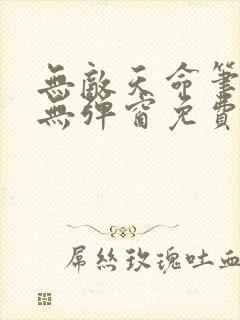 無敵天命筆
無彈窗免費
屌絲玫瑰吐血